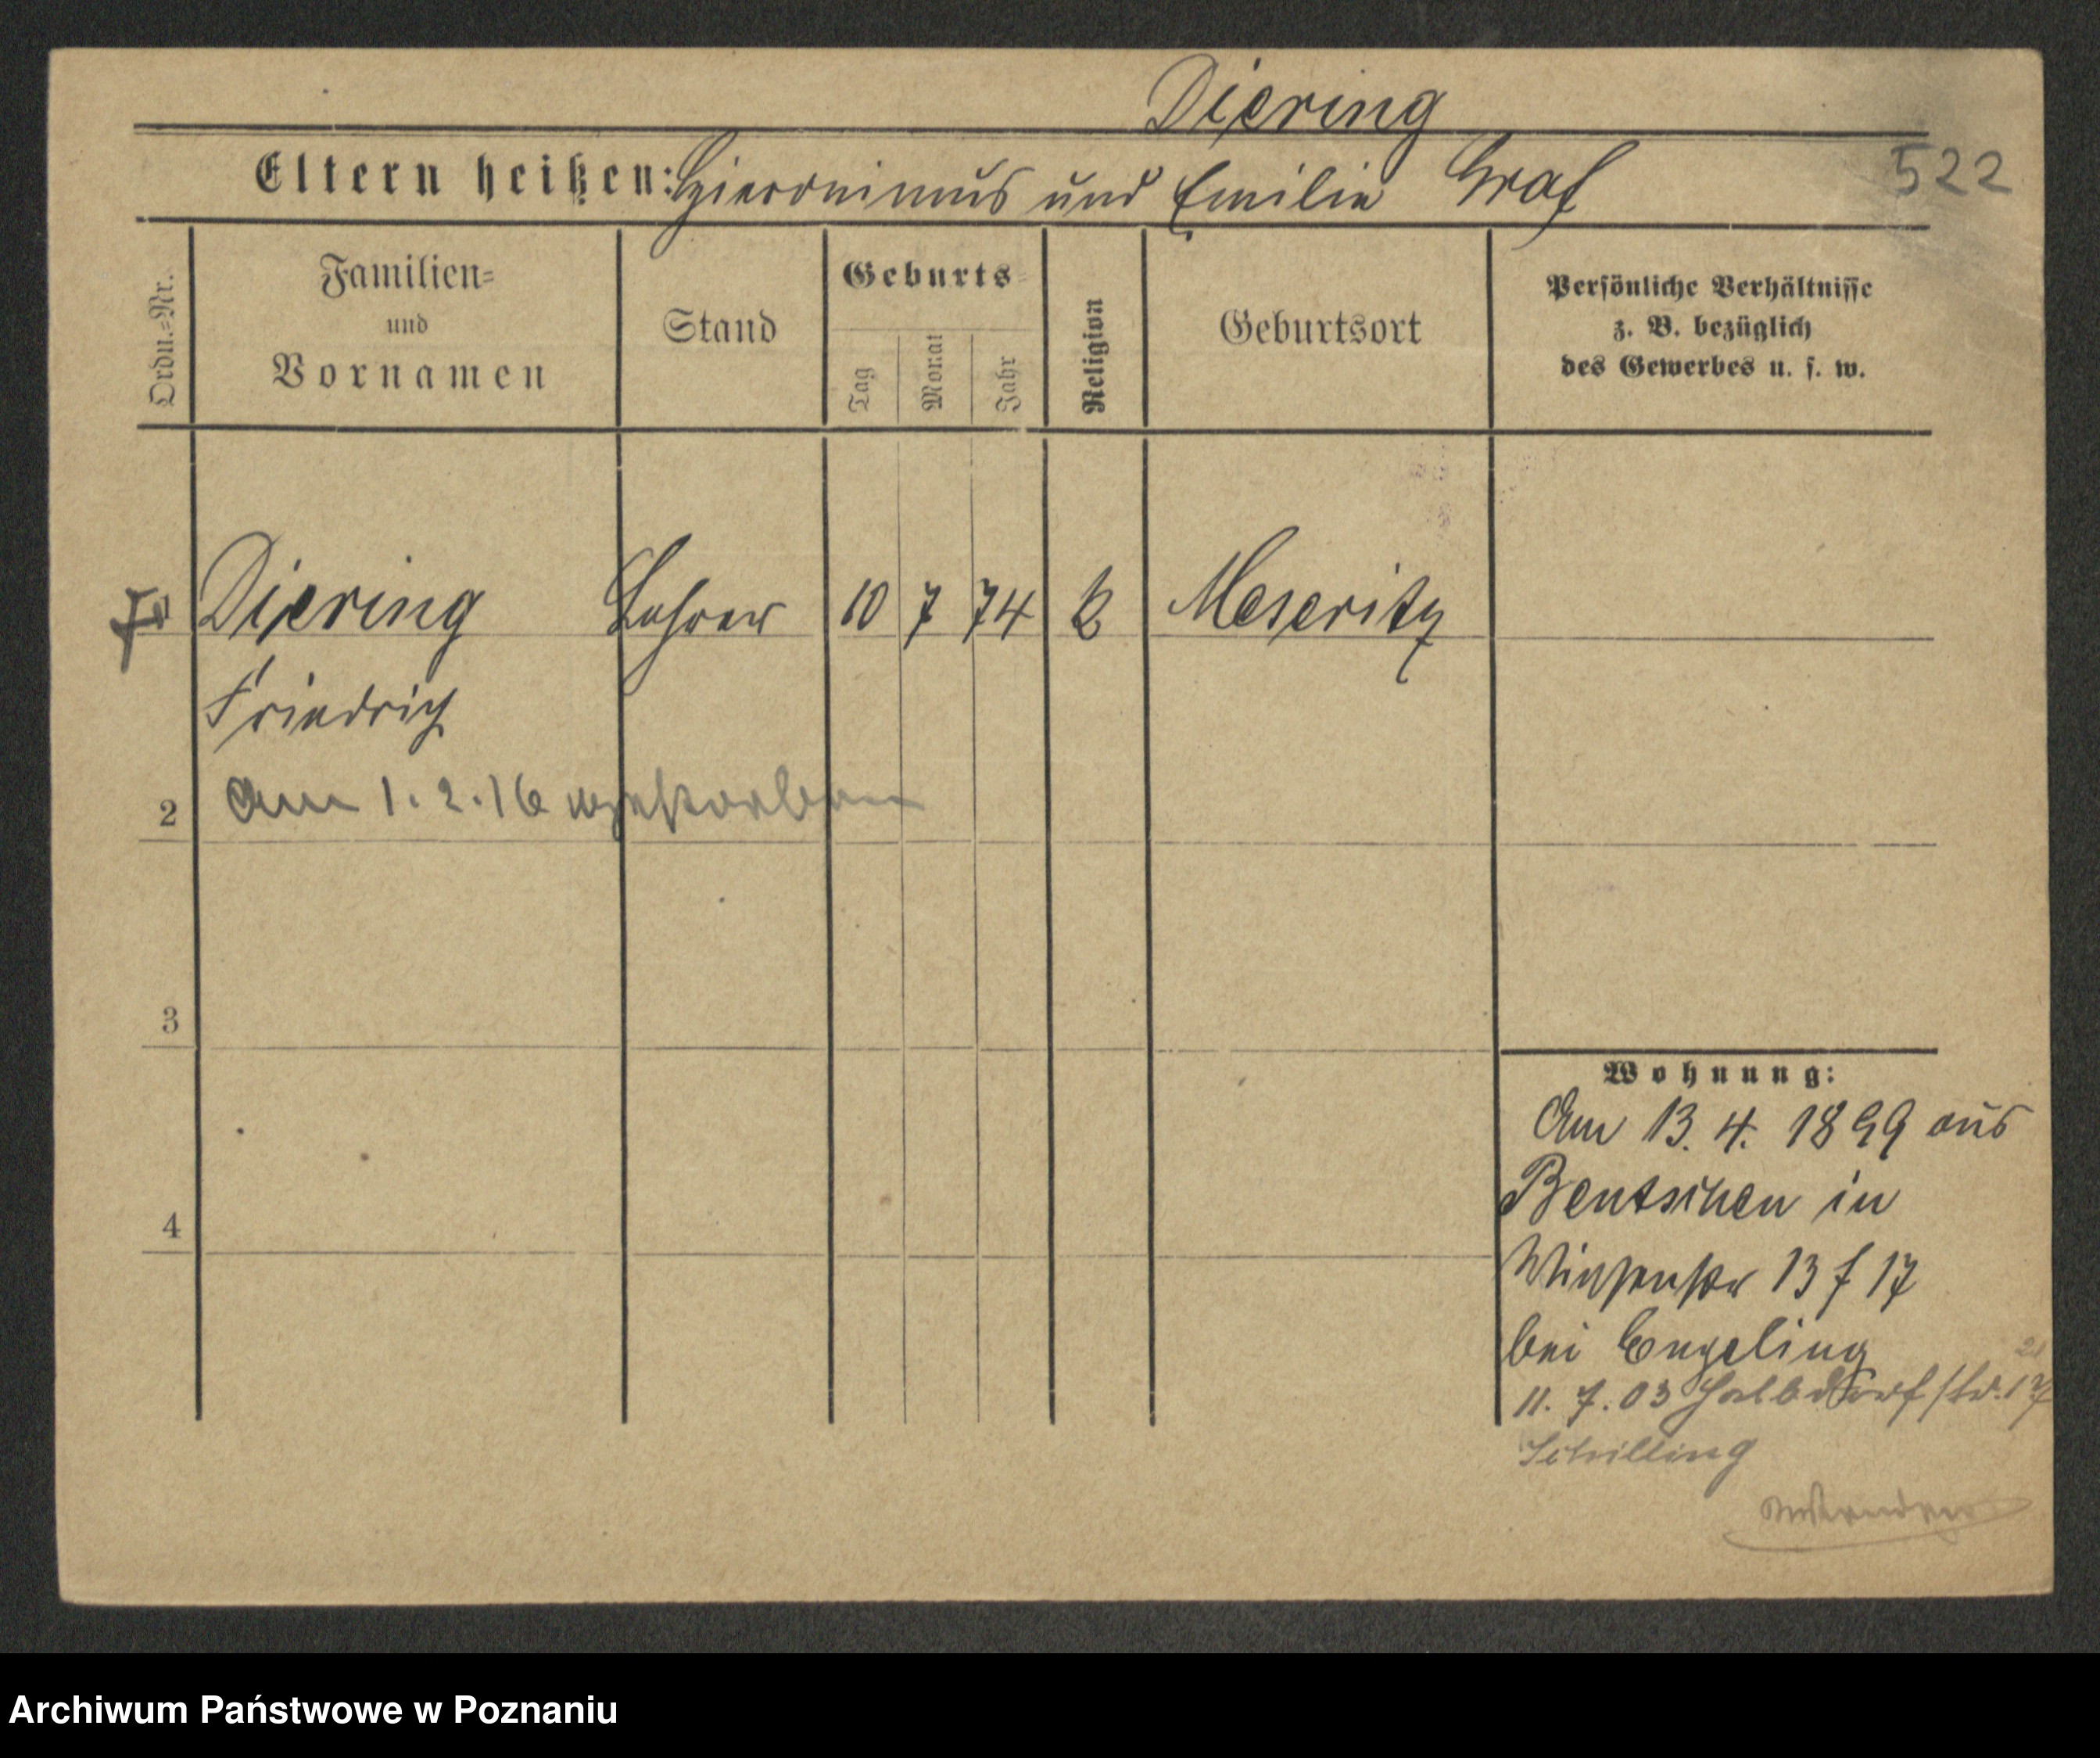 Diering
Eltern heißen: Hieronimus und Emilie Graf
522
Ordn.=Nr.
Familien=
und
Vornamen
Stand
Geburts=
Tag
Monat
Jahr
Religion
Geburtsort
Persönliche Verhältnisse
z. B. bezüglich
des Gewerbes u. s. w.
1 Diering Lehrer 10 7 74 k Meseritz
Friedrich
2 am 1. 2. 16 gestorben
3
4
Wohnung:
Am 13. 4. 1899 aus
Bentschen in
13 f 17
bei Engeling
11. 7. 03 Halbdorfstr. 17
21
Schilling
Archiwum Państwowe w Poznaniu